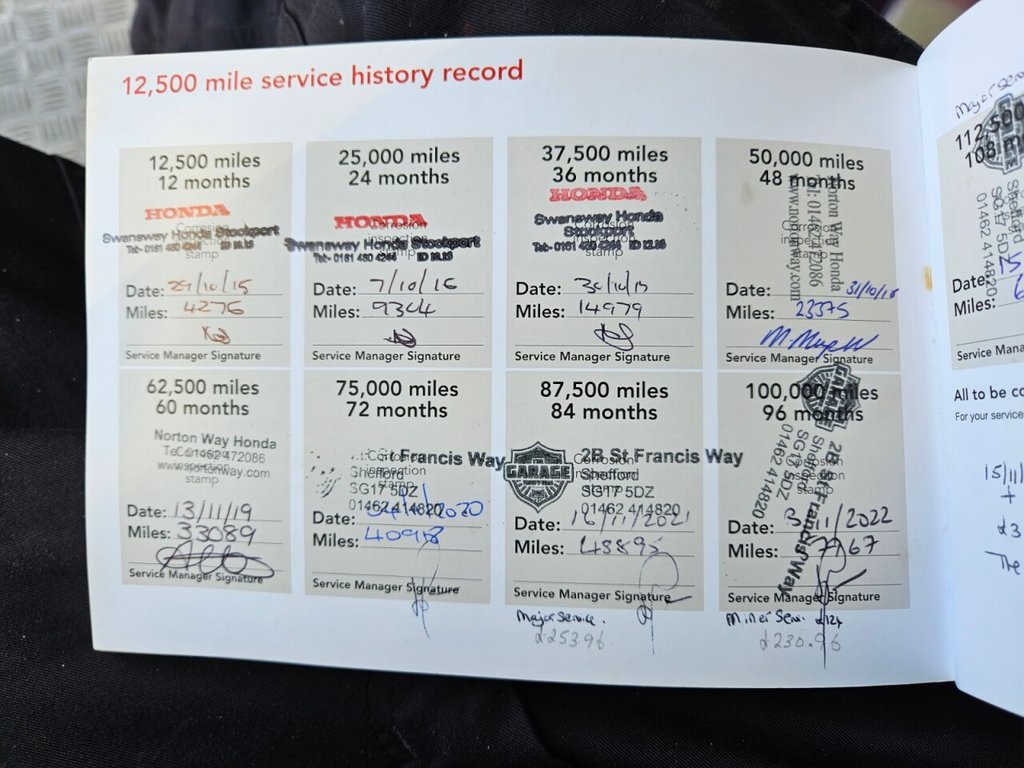 12,500 mile service history record
12,500 miles
12 months
HONDA
Swansway Honda Stockport
Tel:- 0161 480 4244
stamp
Date: 29/10/15
Miles: 4276
Service Manager Signature
25,000 miles
24 months
HONDA
Swansway Honda Stockport
Tel:- 0161 480 4244
stamp
Date: 7/10/16
Miles: 9304
Service Manager Signature
37,500 miles
36 months
HONDA
Swansway Honda
Stockport
Tel:- 0161 480 4244
stamp
Date: 30/10/17
Miles: 14979
Service Manager Signature
50,000 miles
48 months
Norton Way Honda
Tel: 01462 472086
Corrosion
inspection
stamp
Date: 31/10/18
Miles: 23375
Service Manager Signature
62,500 miles
60 months
Norton Way Honda
01462 472086
stamp
Date: 13/11/19
Miles: 33089
Service Manager Signature
75,000 miles
72 months
St Francis Way
Corrosion
Shefford
inspection
SG17 5DZ
stamp
01462 414820
Date: 2020
Miles: 40918
Service Manager Signature
87,500 miles
84 months
GARAGE
2B St Francis Way
Corrosion
Shefford
inspection
SG17 5DZ
stamp
01462 414820
Date: 16/11/2021
Miles: 48895
Service Manager Signature
Major Service.
£253.96
100,000 miles
96 months
GARAGE
2B St Francis Way
Shefford
SG17 5DZ
01462 414820
Date: /2022
Miles:
Service Manager Signature
£230.96
Major
112,500
108
Shefford
SG17 5DZ
01462 414820
Date: 15
Miles: 6
Service Mana
All to be co
For your service
15/11/
+
£3
The